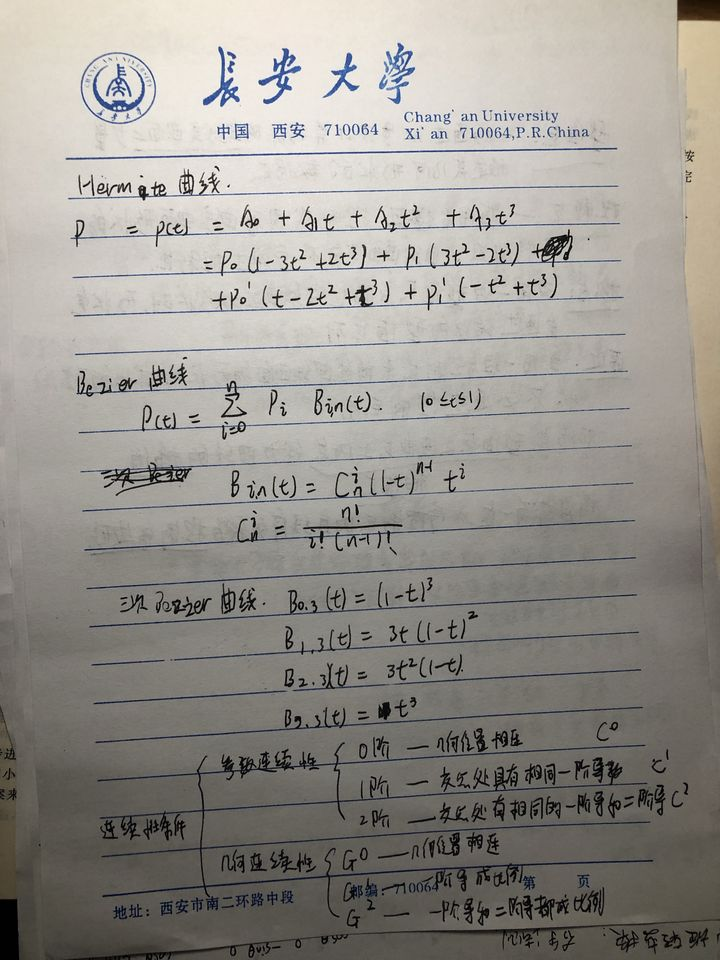 長安大學
中国 西安 710064 Chang'an University
Xi'an 710064,P.R.China
Hermite 曲线.
P = p(t) = A₀ + A₁t + A₂t² + A₃t³
= P₀(1-3t²+2t³) + P₁(3t²-2t³)
+P₀'(t-2t²+t³) + P₁'(-t²+t³)
Bezier 曲线
P(t) = Σ Pᵢ Bᵢ,n(t). (0≤t≤1)
n
i=0
三次 Bezier
Bᵢ,n(t) = Cₙⁱ(1-t)ⁿ⁻ⁱ tⁱ
Cₙⁱ = n! / i!(n-i)!
三次 Bezier 曲线. B₀.₃(t) = (1-t)³
B₁,₃(t) = 3t(1-t)²
B₂.₃(t) = 3t²(1-t)
B₃.₃(t) = t³
连续性条件
参数连续性
0阶 — 几何位置相连 C⁰
1阶 — 交点处具有相同一阶导数 C¹
2阶 — 交点处有相同的一阶导和二阶导 C²
几何连续性
G⁰ — 几何位置相连
一阶导成比例
G² — 一阶导和二阶导都成比例
邮编:710064 第 页
地址:西安市南二环路中段